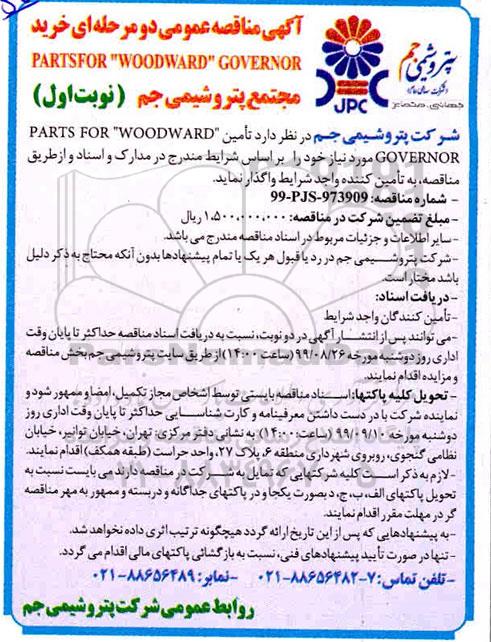 آگهی مناقصه عمومی دو مرحله ای خرید
PARTSFOR "WOODWARD" GOVERNOR
مجتمع پتروشیمی جم (نوبت اول)
پتروشیمی جم
(شرکت سهامی عام)
JPC
شرکت پتروشیمی جم در نظر دارد تأمین PARTS FOR "WOODWARD"
GOVERNOR مورد نیاز خود را بر اساس شرایط مندرج در مدارک و اسناد و ازطریق
مناقصه، به تأمین کننده واجد شرایط واگذار نماید.
- شماره مناقصه: 99-PJS-973909
- مبلغ تضمین شرکت در مناقصه: ۱،۵۰۰،۰۰۰،۰۰۰ ریال
- سایر اطلاعات و جزئیات مربوط در اسناد مناقصه مندرج می باشد.
- شرکت پتروشیمی جم در رد یا قبول هر یک یا تمام پیشنهادها بدون آنکه محتاج به ذکر دلیل
باشد مختار است.
- دریافت اسناد:
- تأمین کنندگان واجد شرایط
- می توانند پس از انتشار آگهی در دو نوبت، نسبت به دریافت اسناد مناقصه حداکثر تا پایان وقت
اداری روز دوشنبه مورخه ۹۹/۰۸/۲۶ (ساعت ۱۴:۰۰) از طریق سایت پتروشیمی جم بخش مناقصه
و مزایده اقدام نمایند.
- تحویل کلیه پاکتها: اسناد مناقصه بایستی توسط اشخاص مجاز تکمیل، امضا و ممهور شود و
نماینده شرکت با در دست داشتن معرفینامه و کارت شناسایی حداکثر تا پایان وقت اداری روز
دوشنبه مورخه ۹۹/۰۹/۱۰ (ساعت ۱۴:۰۰) به نشانی دفتر مرکزی: تهران، خیابان توانیر، خیابان
نظامی گنجوی، روبروی شهرداری منطقه ۶، پلاک ۲۷، واحد حراست (طبقه همکف) اقدام نمایند.
- لازم به ذکر است کلیه شرکتهایی که تمایل به شرکت در مناقصه دارند می بایست نسبت به
تحویل پاکتهای الف، ب، ج، د بصورت یکجا و در پاکتهای جداگانه و دربسته و ممهور به مهر مناقصه
گر در مهلت مقرر اقدام نمایند.
- به پیشنهادهایی که پس از این تاریخ ارائه گردد هیچگونه ترتیب اثری داده نخواهد شد.
- تنها در صورت تأیید پیشنهادهای فنی، نسبت به بازگشائی پاکتهای مالی اقدام می گردد.
- تلفن تماس: ۷-۸۸۶۵۶۴۸۲-۰۲۱ - نمابر: ۸۸۶۵۶۴۸۹-۰۲۱
روابط عمومی شرکت پتروشیمی جم